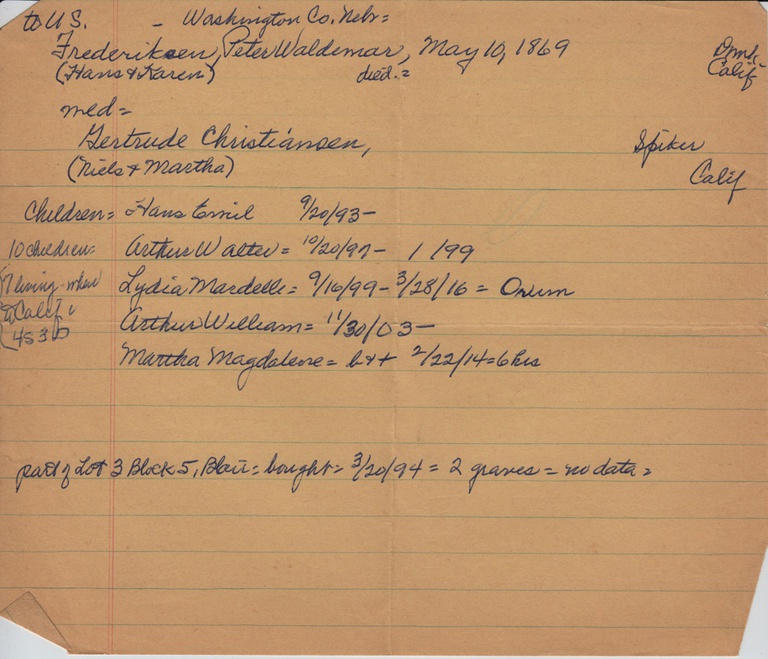 to U.S. - Washington Co. Nebr=
Frederiksen, Peter Waldemar, May 10, 1869 Dmk-
(Hans & Karen) died.= Calif
med=
Gertrude Christiansen, Spiker
(Niels & Martha) Calif
Children= Hans Emil 9/20/93-
10 children= Arthur Walter= 10/20/97- 1/99
7 living - when Lydia Mardelle= 9/16/99- 3/28/16 = Orum
to Calif
Arthur William= 11/30/03-
4S 3D
Martha Magdalene= b+t 2/22/14=6hrs
part of Lot 3 Block 5, Blair= bought= 3/20/94 = 2 graves= no data=